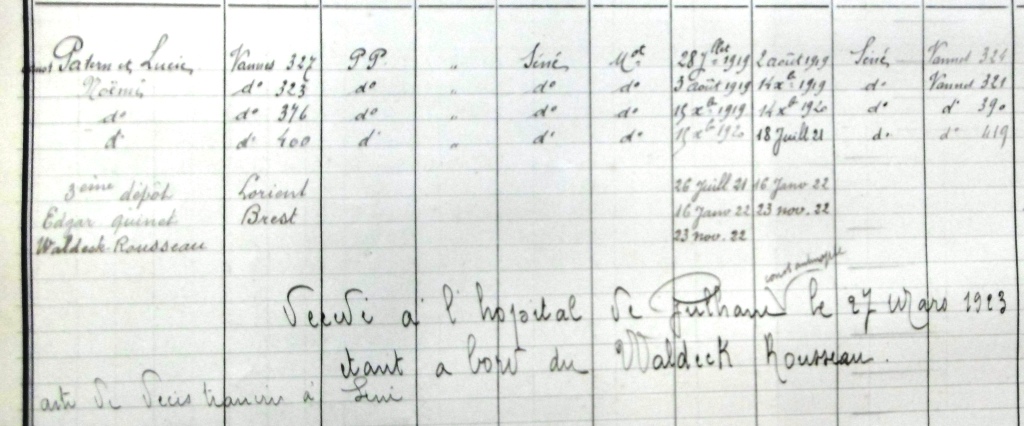 Patern et Lucie Vannes 327 P.P. " Séné Mot 28 Jllet 1919 2 août 1919 Séné Vannes 321
Noémie do 323 do " do do 3 août 1919 14 xb 1919 do Vannes 321
do do 376 do " do do 15 xb 1919 14 xb 1920 do do 390
do do 400 do " do do 15 xb 1920 18 Juill 21 do do 419
3eme dépôt Lorient 26 Juill 21 16 Janv 22
Edgar Quinet Brest 16 Janv 22 23 nov. 22
Waldeck-Rousseau 23 nov. 22
Décédé à l'hopital de le 27 Mars 1923
étant a bord du Waldeck Rousseau.
acte de décès transcrit à Séné